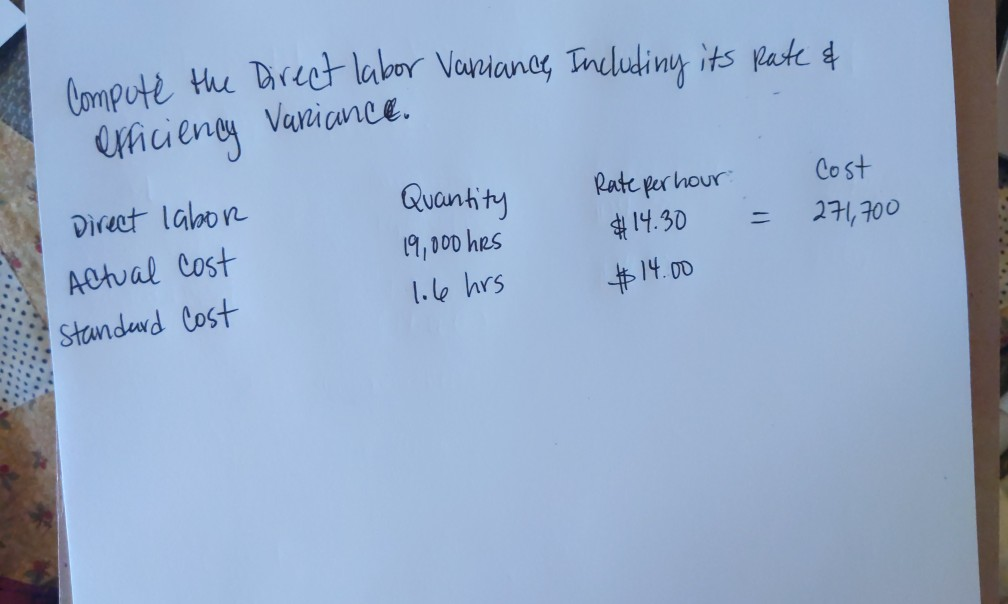 Compute the Direct labor Variance, Including its Rate &
efficiency Variance.
Direct labor Quantity Rate per hour: Cost
Actual Cost 19,000 hrs $14.30 = 271,700
Standard Cost 1.6 hrs $14.00